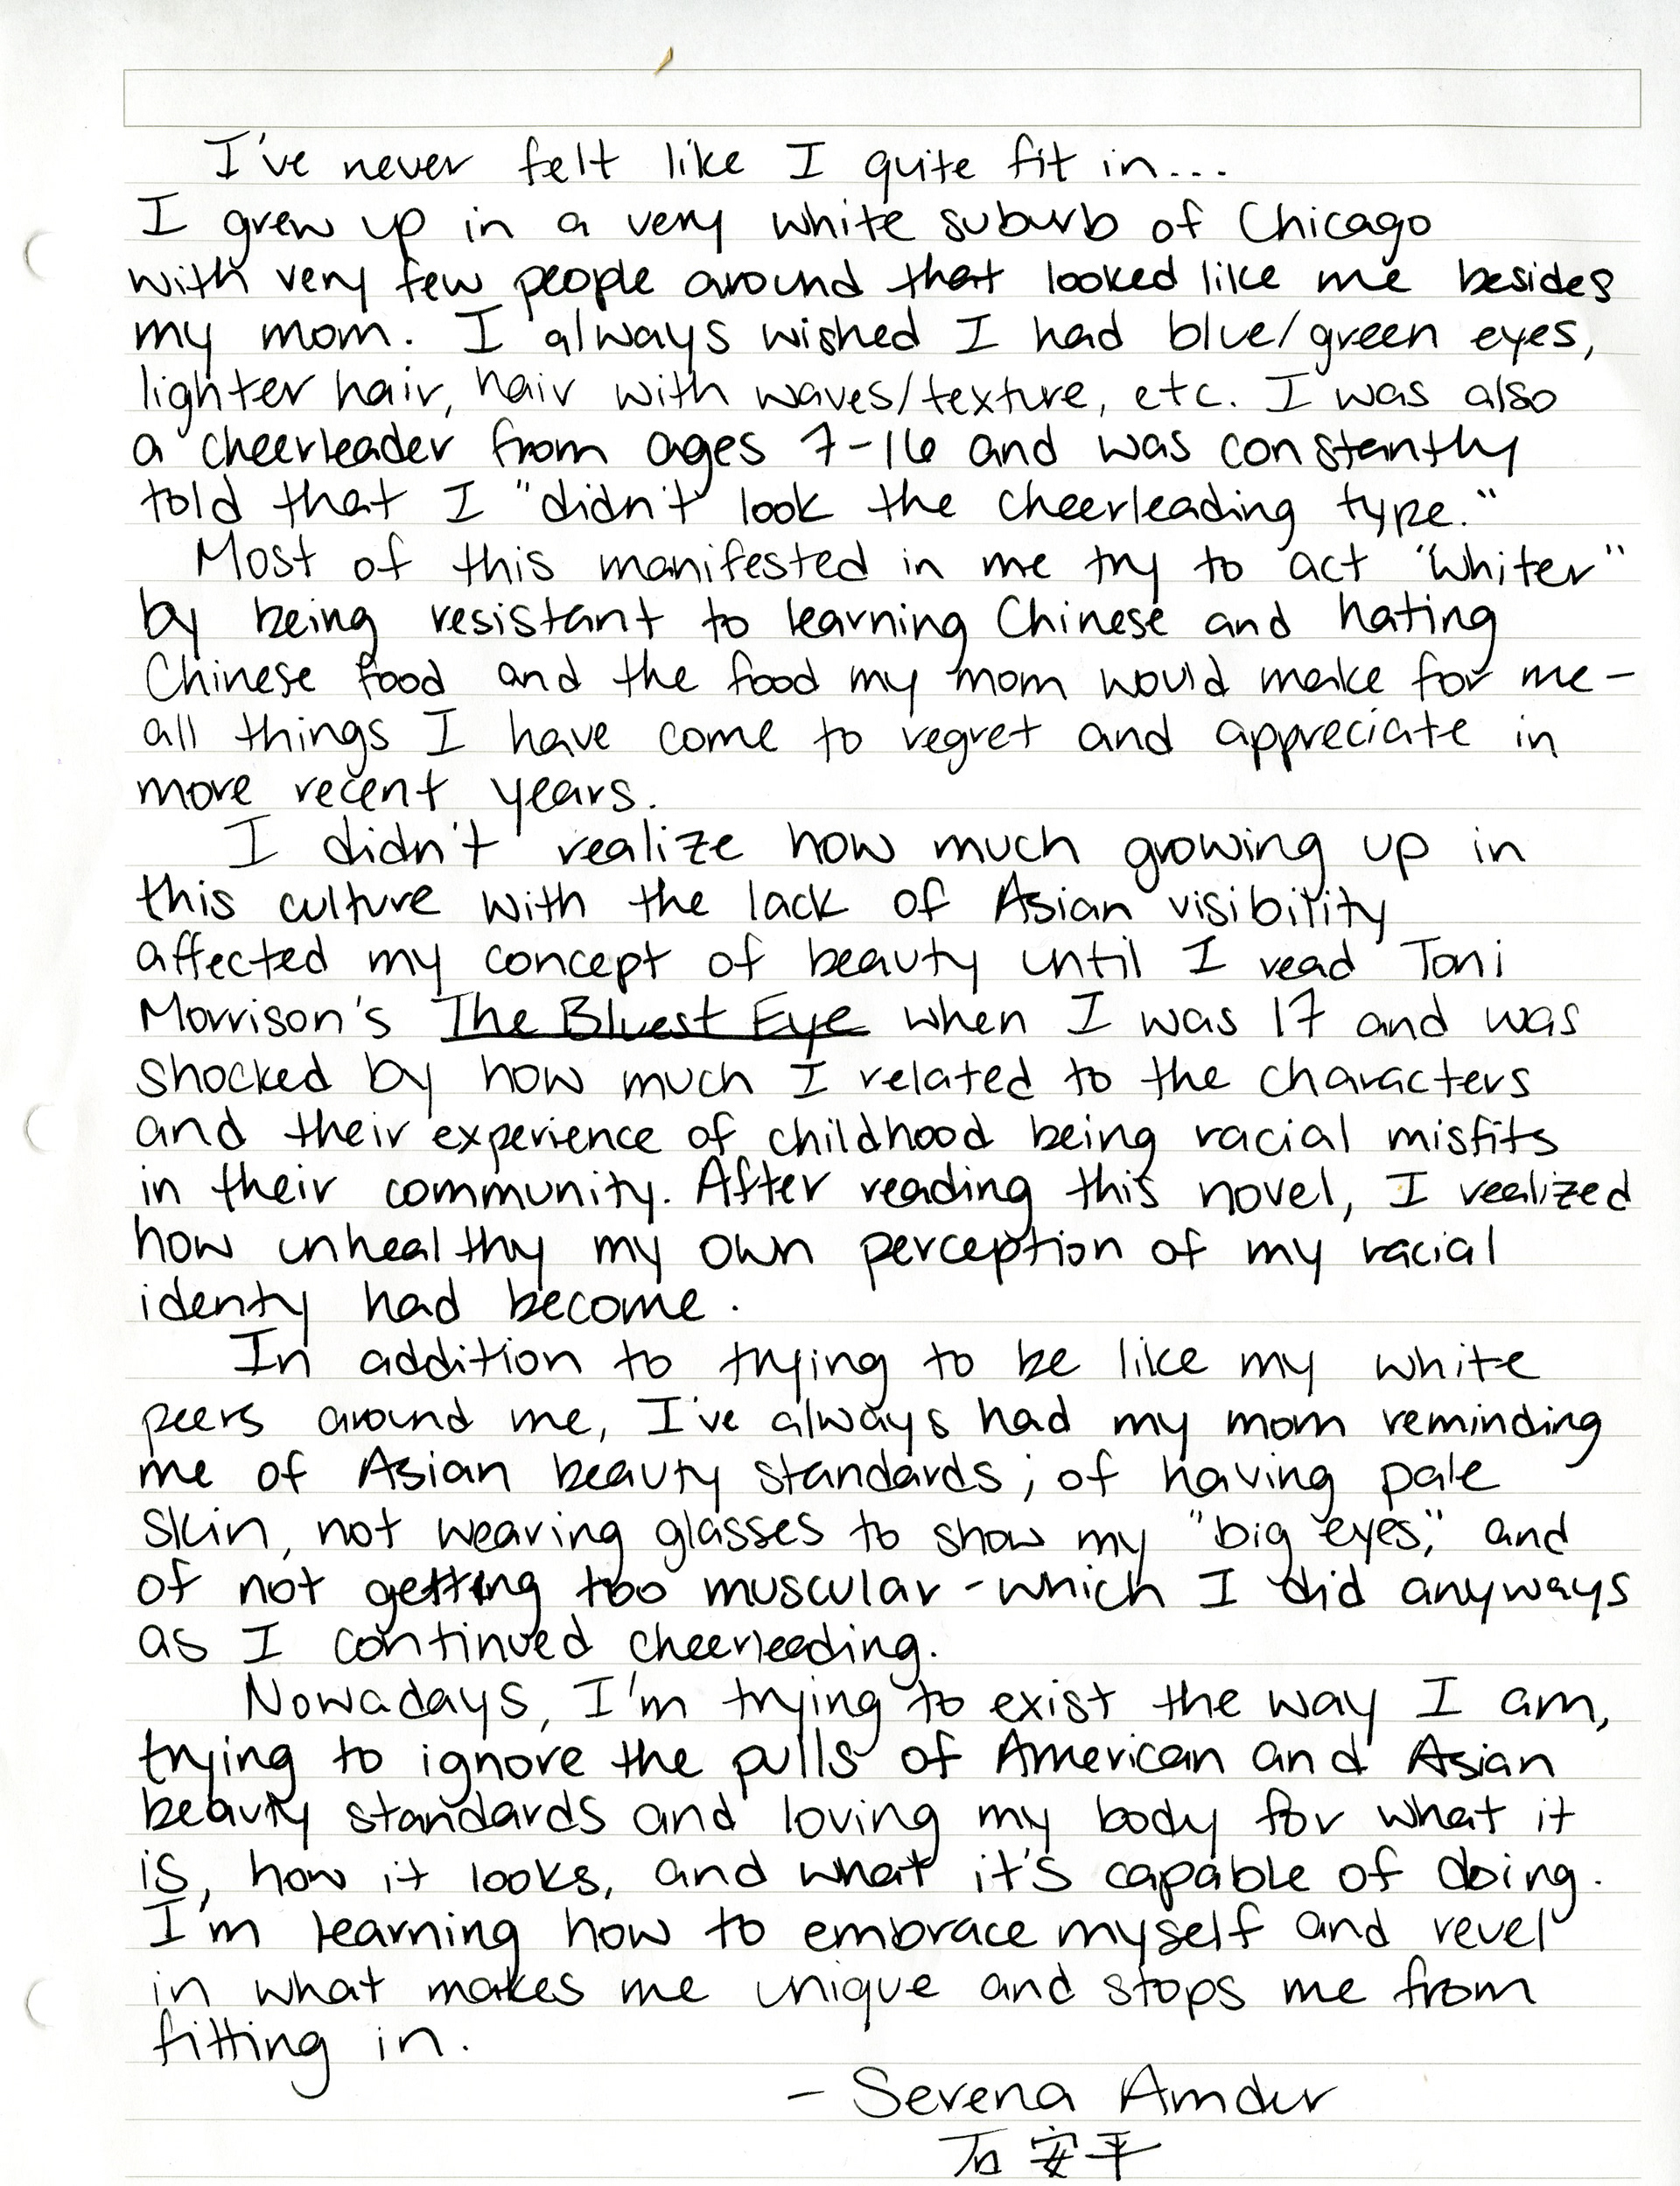 I've never felt like I quite fit in...
I grew up in a very white suburb of Chicago
with very few people around that looked like me besides
my mom. I always wished I had blue/green eyes,
lighter hair, hair with waves/texture, etc. I was also
a cheerleader from ages 7-16 and was constantly
told that I "didn't look the cheerleading type."
Most of this manifested in me try to act "whiter"
by being resistant to learning Chinese and hating
Chinese food and the food my mom would make for me-
all things I have come to regret and appreciate in
more recent years.
I didn't realize how much growing up in
this culture with the lack of Asian visibility
affected my concept of beauty until I read Toni
Morrison's The Bluest Eye when I was 17 and was
shocked by how much I related to the characters
and their experience of childhood being racial misfits
in their community. After reading this novel, I realized
how unhealthy my own perception of my racial
identy had become.
In addition to trying to be like my white
peers around me, I've always had my mom reminding
me of Asian beauty standards; of having pale
skin, not wearing glasses to show my "big eyes," and
of not getting too muscular-which I did anyways
as I continued cheerleading.
Nowadays, I'm trying to exist the way I am,
trying to ignore the pulls of American and Asian
beauty standards and loving my body for what it
is, how it looks, and what it's capable of doing.
I'm learning how to embrace myself and revel
in what makes me unique and stops me from
fitting in.
- Serena Amdur
石安平